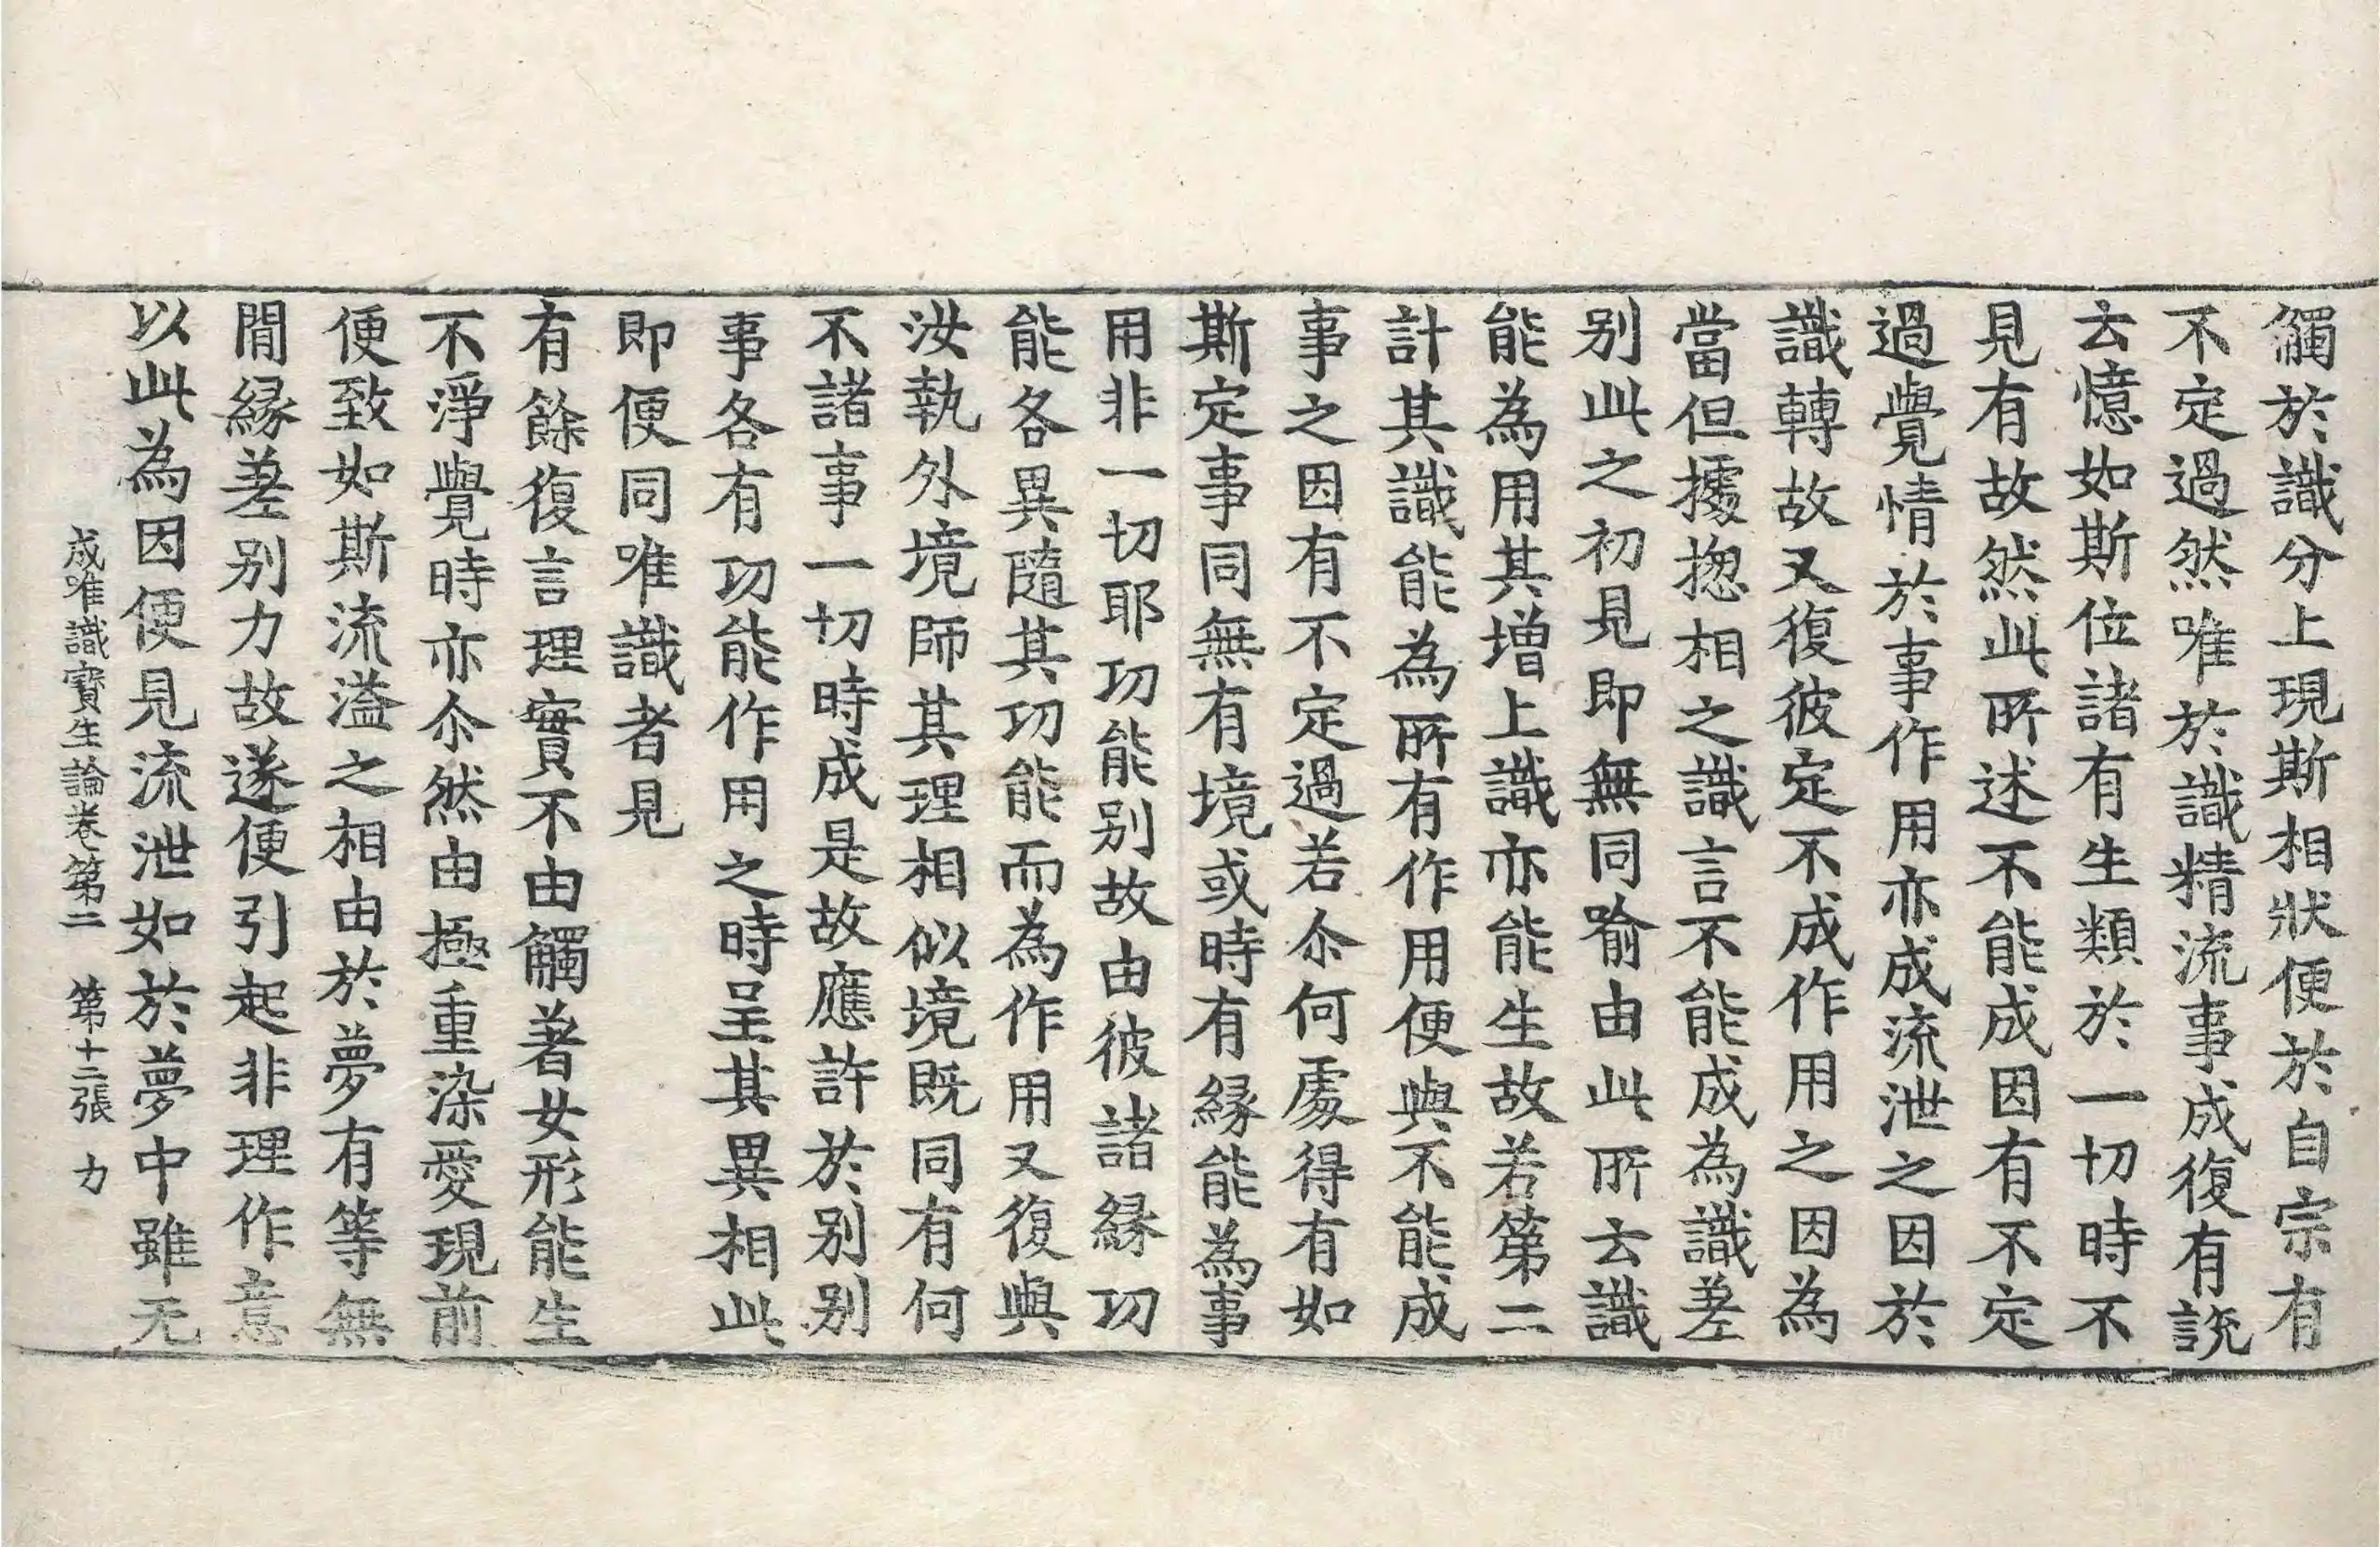 觸於識分上現斯相狀便於自宗有
不定過然唯於識精流事成復有說
云憶如斯位諸有生類於一切時不
見有故然此所述不能成因有不定
過覺情於事作用亦成流泄之因於
識轉故又復彼定不成作用之因為
當但據揔相之識言不能成為識差
别此之初見即無同喻由此所云識
能為用其增上識亦能生故若第二
計其識能為所有作用便與不能成
事之因有不定過若尒何處得有如
斯定事同無有境或時有緣能為事
用非一切耶功能别故由彼諸緣功
能各異隨其功能而為作用又復與
汝執外境師其理相似境既同有何
不諸事一切時成是故應許於别别
事各有功能作用之時呈其異相此
即便同唯識者見
有餘復言理實不由觸著女形能生
不淨覺時亦尒然由極重染愛現前
便致如斯流溢之相由於夢有等無
間緣差别力故遂便引起非理作意
以此為因便見流泄如於夢中雖无
成唯識寶生論卷第二 第十二張 力